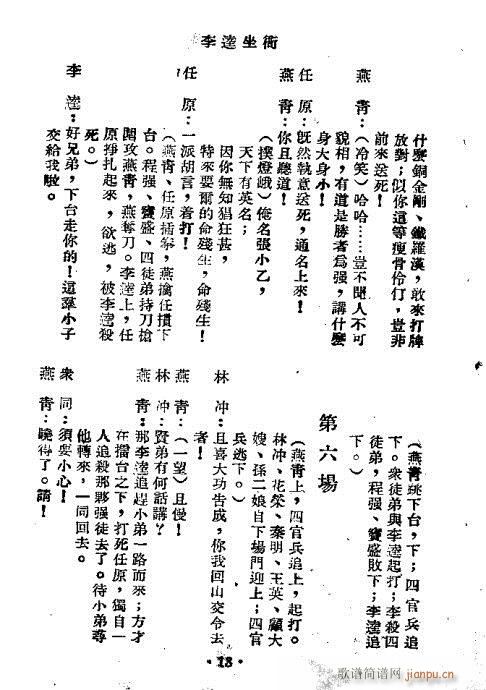 李逵坐衙
什麽銅金剛、鐵羅漢，敢來打牌
放對；似你這等瘦骨伶仃，豈非
前來送死！
燕　青：（冷笑）哈哈……豈不聞人不可
貌相，有道是勝者爲强，講什麽
身大身小！
任　原：旣然執意送死，通名上來！
燕　青：你且聽道！
（撲燈蛾）俺名張小乙，
天下有英名；
因你無知猖狂甚，
特來要爾的命殘生，命殘生！
任　原：一派胡言，着打！
（燕青、任原插拳，燕擒任摜下
台。程强、寶盛、四徒弟持刀槍
圍攻燕靑，燕奪刀。李逵上，任
原掙扎起來，欲逃，被李逵殺
死。）
李　逵：好兄弟，下台走你的！這羣小子
交給我啦。
（燕靑跳下台，下；四官兵追
下。衆徒弟與李逵起打；李殺四
徒弟，程强、寶盛敗下；李逵追
下。）
第六場
（燕靑上，四官兵追上，起打。
林冲、花榮、秦明、王英、顧大
嫂、孫二娘自下場門迎上；四官
兵逃下。）
林　冲：且喜大功告成，你我回山交令去
者！
燕　靑：（一望）且慢！
林　冲：賢弟有何話講？
燕　靑：那李逵追趕小弟一路而來；方才
在擂台之下，打死任原，獨自一
人追殺那夥强徒去了。待小弟尋
他轉來，一同回去。
衆　同：須要小心！
燕　靑：曉得了。請！
·18·
歌谱简谱网
jianpu.cn